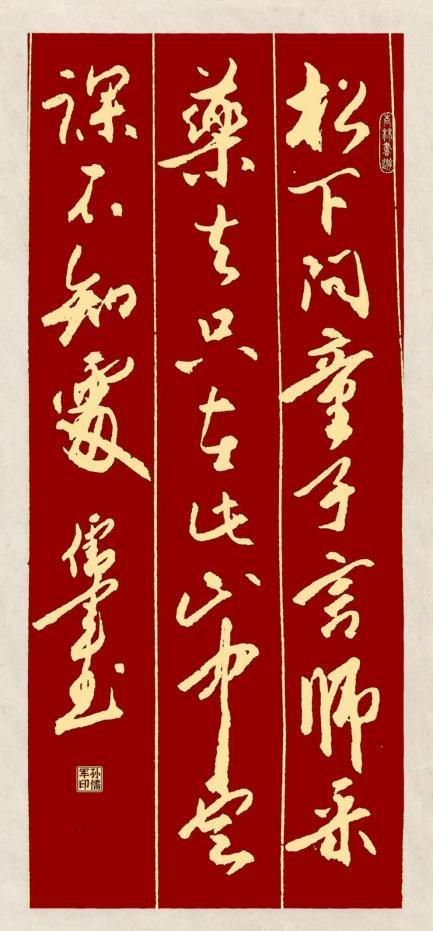 松下问童子言师采
藥去只在此山中雲
深不知處 儒军书
孙儒军印